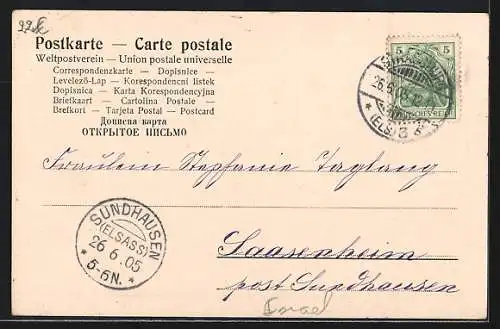 Postkarte — Carte postale
Weltpostverein — Union postale universelle
Correspondenzkarte — Dopisnice
Levelező-Lap — Korespondencni listek
Dopisnica — Karta Korespondencyjna
Briefkaart — Cartolina Postale
Brefkort — Tarjeta Postal — Postcard
Дописна карта
ОТКРЫТОЕ ПИСЬМО
5 5
26.6.05
(ELS)
Fräulein Stephanie
Saasenheim
post Sundhausen
SUNDHAUSEN
(ELSASS)
26 6 05
* 5-6N. *
Israel